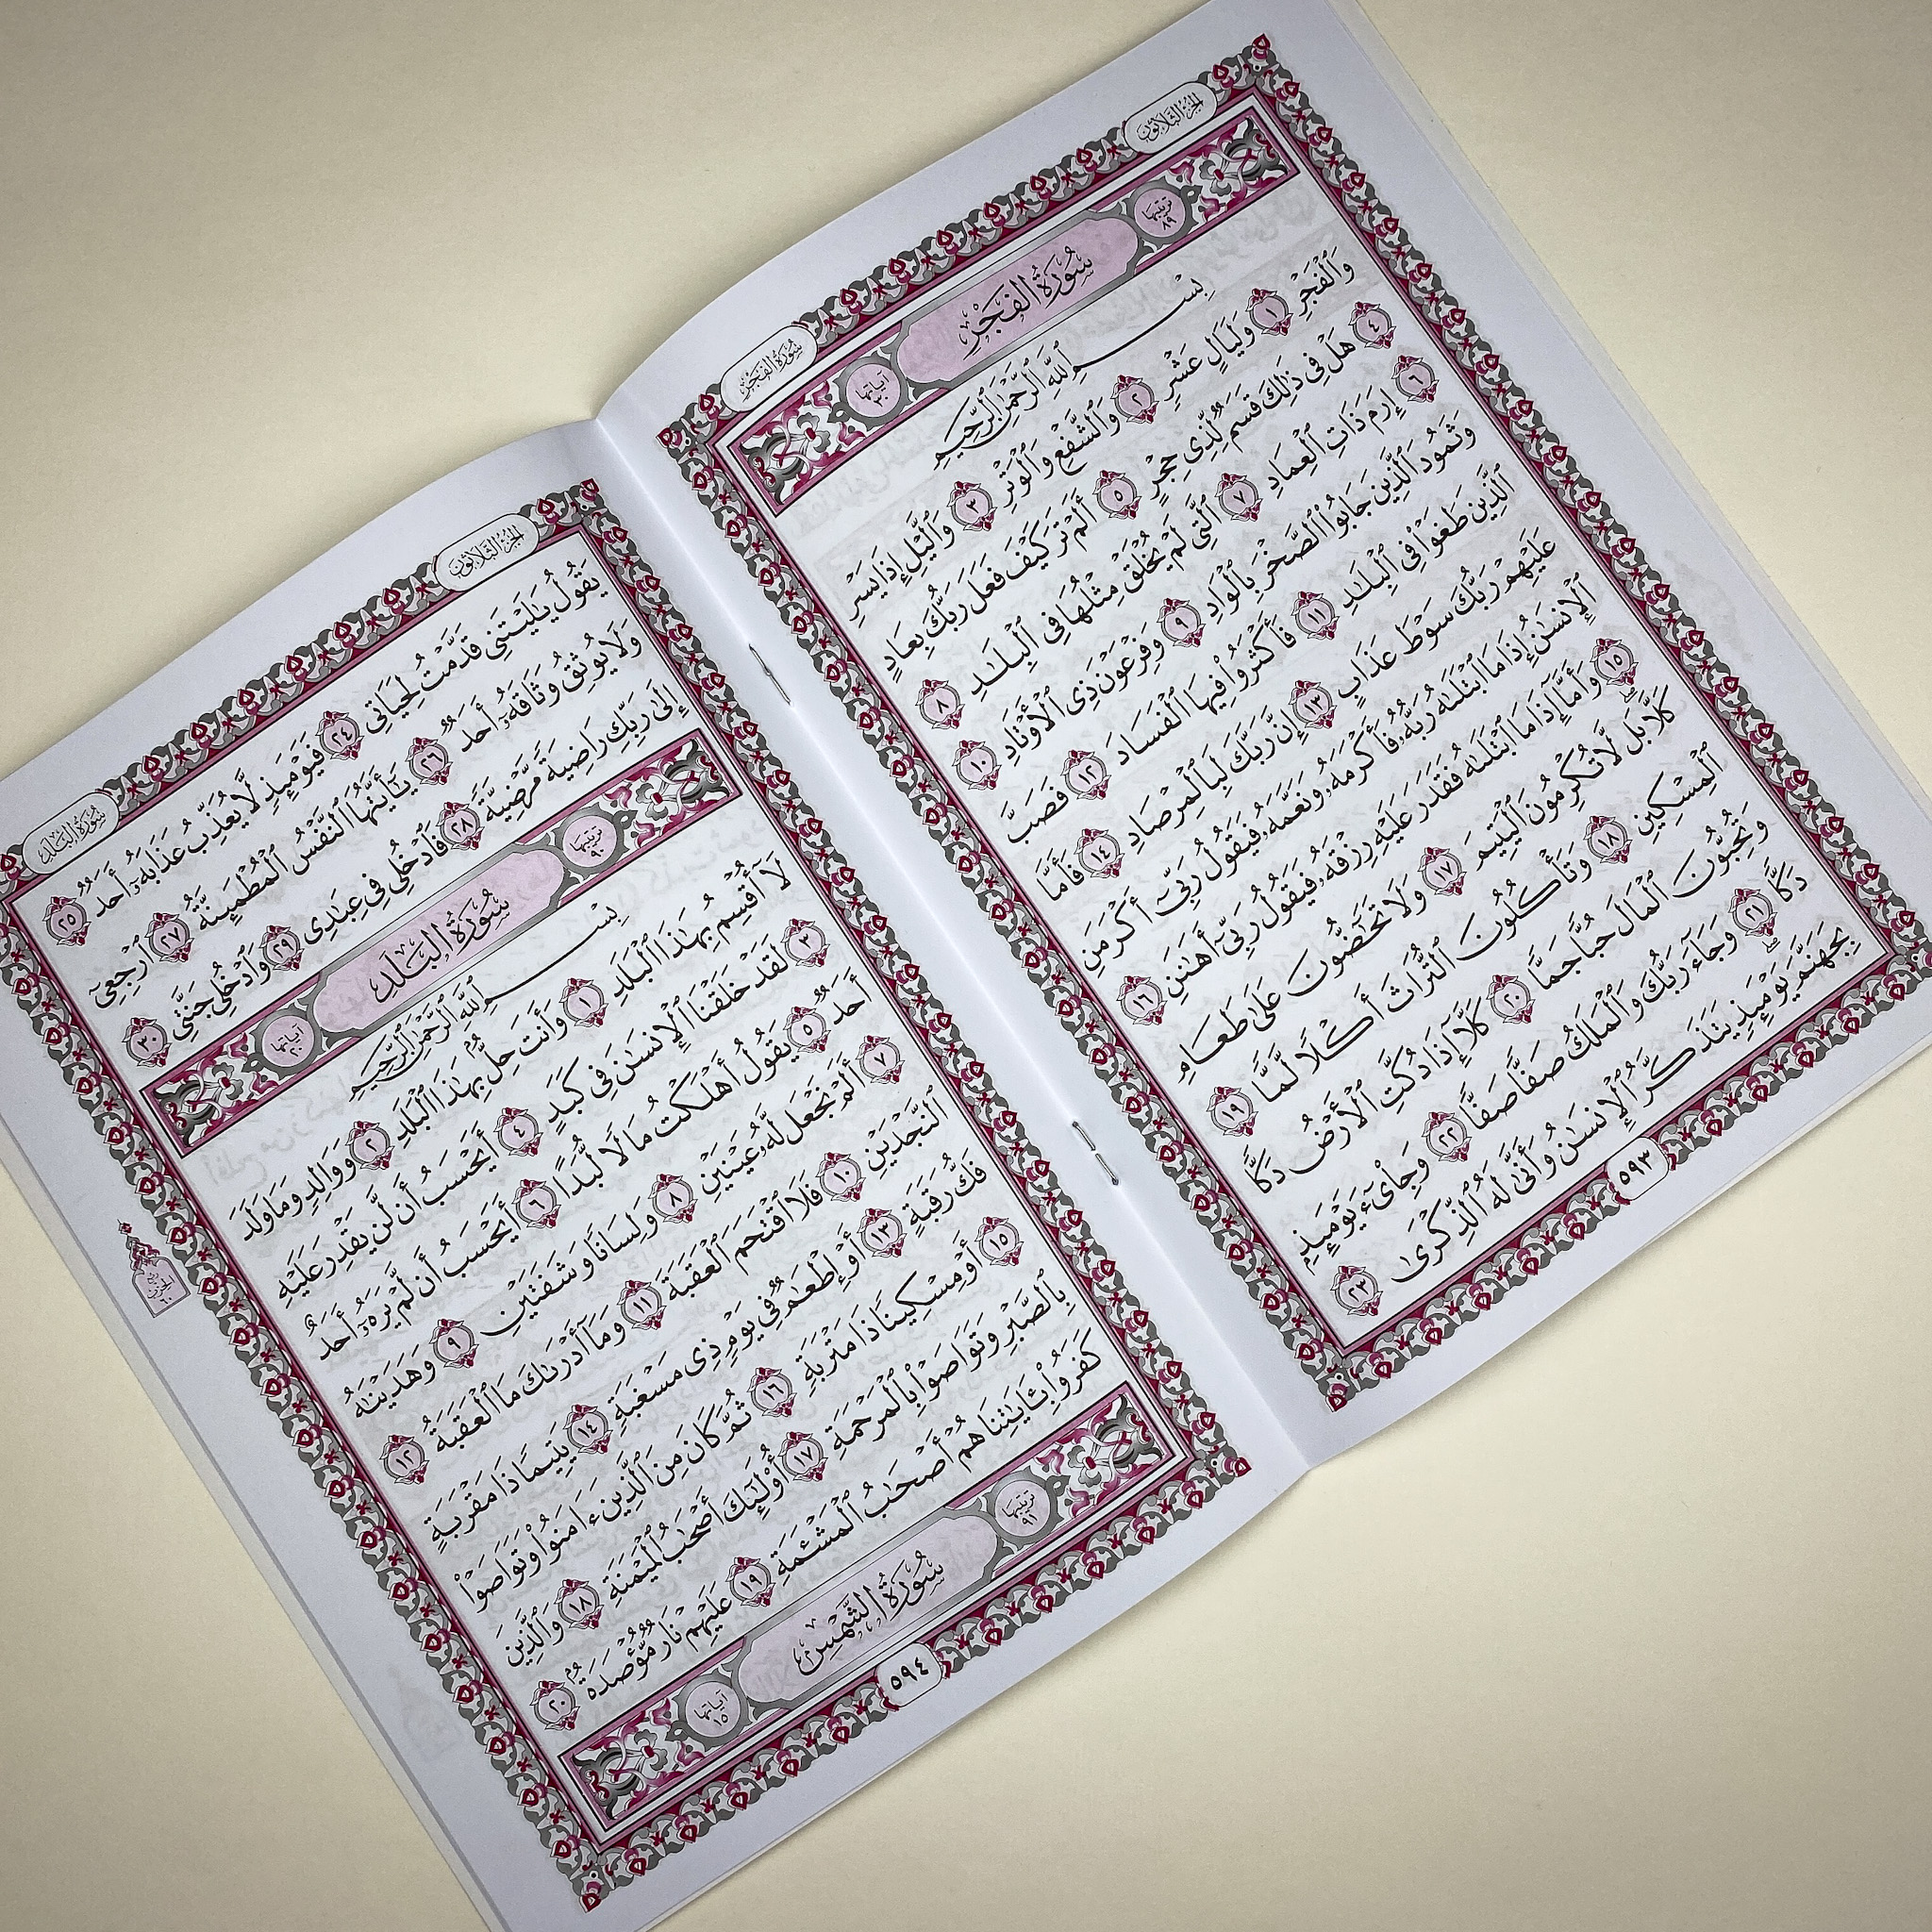 الجزء الثلاثون
سورة الفجر
ترتيبها ٨٩
سُورَةُ الفَجْرِ
آياتها ٣٠
بِسْمِ ٱللَّهِ ٱلرَّحْمَٰنِ ٱلرَّحِيمِ
وَٱلْفَجْرِ ١ وَلَيَالٍ عَشْرٍ ٢ وَٱلشَّفْعِ وَٱلْوَتْرِ ٣ وَٱلَّيْلِ إِذَا يَسْرِ
٤ هَلْ فِى ذَٰلِكَ قَسَمٌ لِّذِى حِجْرٍ ٥ أَلَمْ تَرَ كَيْفَ فَعَلَ رَبُّكَ بِعَادٍ
٦ إِرَمَ ذَاتِ ٱلْعِمَادِ ٧ ٱلَّتِى لَمْ يُخْلَقْ مِثْلُهَا فِى ٱلْبِلَٰدِ ٨
وَثَمُودَ ٱلَّذِينَ جَابُوا۟ ٱلصَّخْرَ بِٱلْوَادِ ٩ وَفِرْعَوْنَ ذِى ٱلْأَوْتَادِ ١٠
ٱلَّذِينَ طَغَوْا۟ فِى ٱلْبِلَٰدِ ١١ فَأَكْثَرُوا۟ فِيهَا ٱلْفَسَادَ ١٢ فَصَبَّ
عَلَيْهِمْ رَبُّكَ سَوْطَ عَذَابٍ ١٣ إِنَّ رَبَّكَ لَبِٱلْمِرْصَادِ ١٤ فَأَمَّا
ٱلْإِنسَٰنُ إِذَا مَا ٱبْتَلَىٰهُ رَبُّهُۥ فَأَكْرَمَهُۥ وَنَعَّمَهُۥ فَيَقُولُ رَبِّىٓ أَكْرَمَنِ
١٥ وَأَمَّآ إِذَا مَا ٱبْتَلَىٰهُ فَقَدَرَ عَلَيْهِ رِزْقَهُۥ فَيَقُولُ رَبِّىٓ أَهَٰنَنِ ١٦
كَلَّا بَل لَّا تُكْرِمُونَ ٱلْيَتِيمَ ١٧ وَلَا تَحَٰٓضُّونَ عَلَىٰ طَعَامِ
ٱلْمِسْكِينِ ١٨ وَتَأْكُلُونَ ٱلتُّرَاثَ أَكْلًا لَّمًّا ١٩
وَتُحِبُّونَ ٱلْمَالَ حُبًّا جَمًّا ٢٠ كَلَّآ إِذَا دُكَّتِ ٱلْأَرْضُ دَكًّا
دَكًّا ٢١ وَجَآءَ رَبُّكَ وَٱلْمَلَكُ صَفًّا صَفًّا ٢٢ وَجِا۟ىٓءَ يَوْمَئِذٍۭ
بِجَهَنَّمَ يَوْمَئِذٍ يَتَذَكَّرُ ٱلْإِنسَٰنُ وَأَنَّىٰ لَهُ ٱلذِّكْرَىٰ ٢٣
٥٩٣
الجزء الثلاثون
سورة البلد
يَقُولُ يَٰلَيْتَنِى قَدَّمْتُ لِحَيَاتِى ٢٤ فَيَوْمَئِذٍ لَّا يُعَذِّبُ عَذَابَهُۥٓ أَحَدٌ ٢٥
وَلَا يُوثِقُ وَثَاقَهُۥٓ أَحَدٌ ٢٦ يَٰٓأَيَّتُهَا ٱلنَّفْسُ ٱلْمُطْمَئِنَّةُ ٢٧ ٱرْجِعِىٓ
إِلَىٰ رَبِّكِ رَاضِيَةً مَّرْضِيَّةً ٢٨ فَٱدْخُلِى فِى عِبَٰدِى ٢٩ وَٱدْخُلِى جَنَّتِى ٣٠
ترتيبها ٩٠
سُورَةُ البَلَدِ
آياتها ٢٠
بِسْمِ ٱللَّهِ ٱلرَّحْمَٰنِ ٱلرَّحِيمِ
لَآ أُقْسِمُ بِهَٰذَا ٱلْبَلَدِ ١ وَأَنتَ حِلٌّۢ بِهَٰذَا ٱلْبَلَدِ ٢ وَوَالِدٍ وَمَا وَلَدَ
٣ لَقَدْ خَلَقْنَا ٱلْإِنسَٰنَ فِى كَبَدٍ ٤ أَيَحْسَبُ أَن لَّن يَقْدِرَ عَلَيْهِ
أَحَدٌ ٥ يَقُولُ أَهْلَكْتُ مَالًا لُّبَدًا ٦ أَيَحْسَبُ أَن لَّمْ يَرَهُۥٓ أَحَدٌ
٧ أَلَمْ نَجْعَل لَّهُۥ عَيْنَيْنِ ٨ وَلِسَانًا وَشَفَتَيْنِ ٩ وَهَدَيْنَٰهُ
ٱلنَّجْدَيْنِ ١٠ فَلَا ٱقْتَحَمَ ٱلْعَقَبَةَ ١١ وَمَآ أَدْرَىٰكَ مَا ٱلْعَقَبَةُ ١٢
فَكُّ رَقَبَةٍ ١٣ أَوْ إِطْعَٰمٌ فِى يَوْمٍ ذِى مَسْغَبَةٍ ١٤ يَتِيمًا ذَا مَقْرَبَةٍ
١٥ أَوْ مِسْكِينًا ذَا مَتْرَبَةٍ ١٦ ثُمَّ كَانَ مِنَ ٱلَّذِينَ ءَامَنُوا۟ وَتَوَاصَوْا۟
بِٱلصَّبْرِ وَتَوَاصَوْا۟ بِٱلْمَرْحَمَةِ ١٧ أُو۟لَٰٓئِكَ أَصْحَٰبُ ٱلْمَيْمَنَةِ ١٨ وَٱلَّذِينَ
كَفَرُوا۟ بِـَٔايَٰتِنَا هُمْ أَصْحَٰبُ ٱلْمَشْـَٔمَةِ ١٩ عَلَيْهِمْ نَارٌ مُّؤْصَدَةٌۢ ٢٠
ترتيبها ٩١
سُورَةُ الشَّمْسِ
آياتها ١٥
٥٩٤
ربع الحزب ٦٠